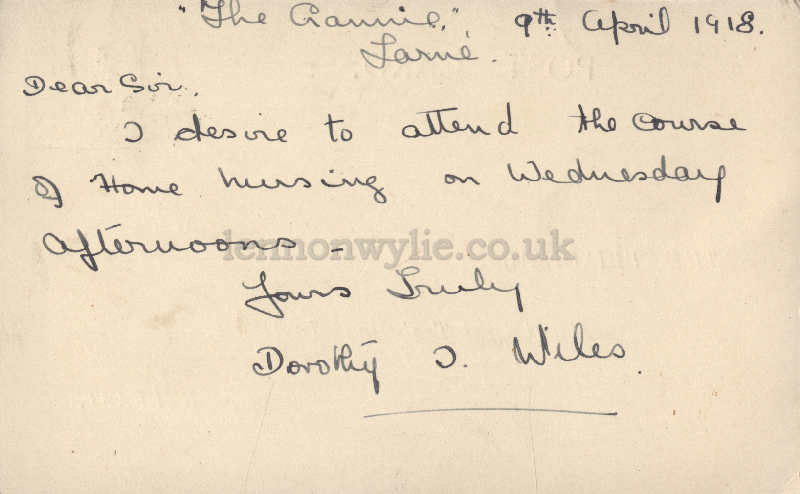 "The Crannie," 9th April 1918.
Larne.
Dear Sir,
I desire to attend the course
of Home nursing on Wednesday
afternoons -
lennonwylie.co.uk
Yours Truly
Dorothy I. Wiles.